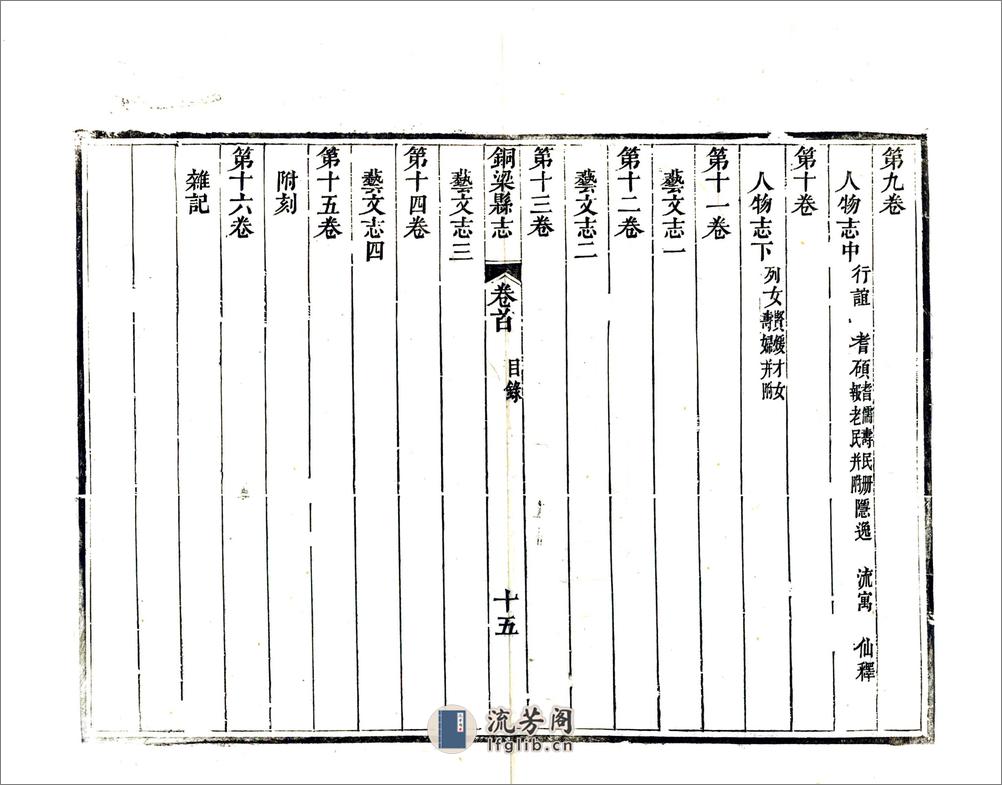 第九卷
人物志中 行誼 耆碩 耆儒壽民冊報老民并附 隱逸 流寓 仙釋
第十卷
人物志下 列女 賢媛才女壽婦并附
第十一卷
藝文志一
第十二卷
藝文志二
第十三卷
銅梁縣志 卷首 目錄 十五
藝文志三
第十四卷
藝文志四
第十五卷
附刻
第十六卷
雜記
流芳阁
lfglib.cn